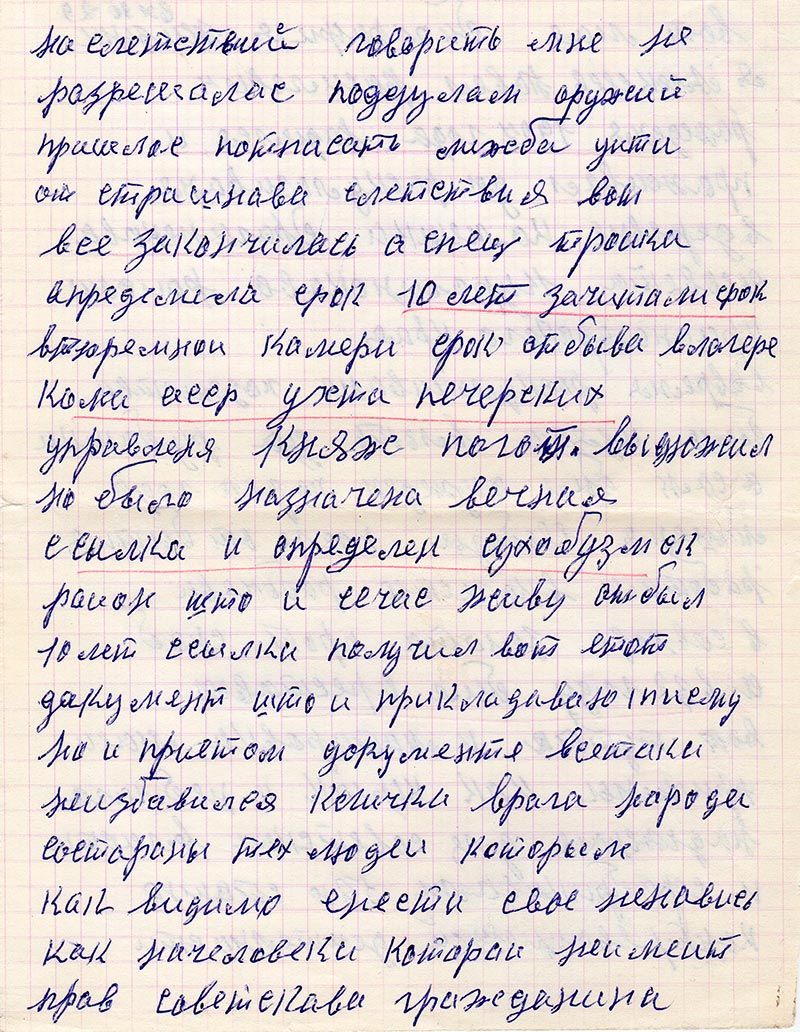 на слетствий говорить мне не
разрешалас поддулам оружий
пришлос потписать лижба уити
от страшнава слетствия вот
все закончилась а спец троика
определила срок 10 лет зачитали срок
втюремнои камери срок отбыва влагере
Коми асср ухта печерских
управленя Княж погост. выдюжил
но было назначена вечная
ссылка и определен сухобузмск
район што и сечас живу отбыл
10 лет ссылки получил вот етот
дакумент што и прикладаваю писму
но и приетом документе всетаки
неизбавился Клички врага народа
состараны тех людеи которым
как видимо снести свое ненавись
как начеловека которои неимеит
прав советскава гражданина